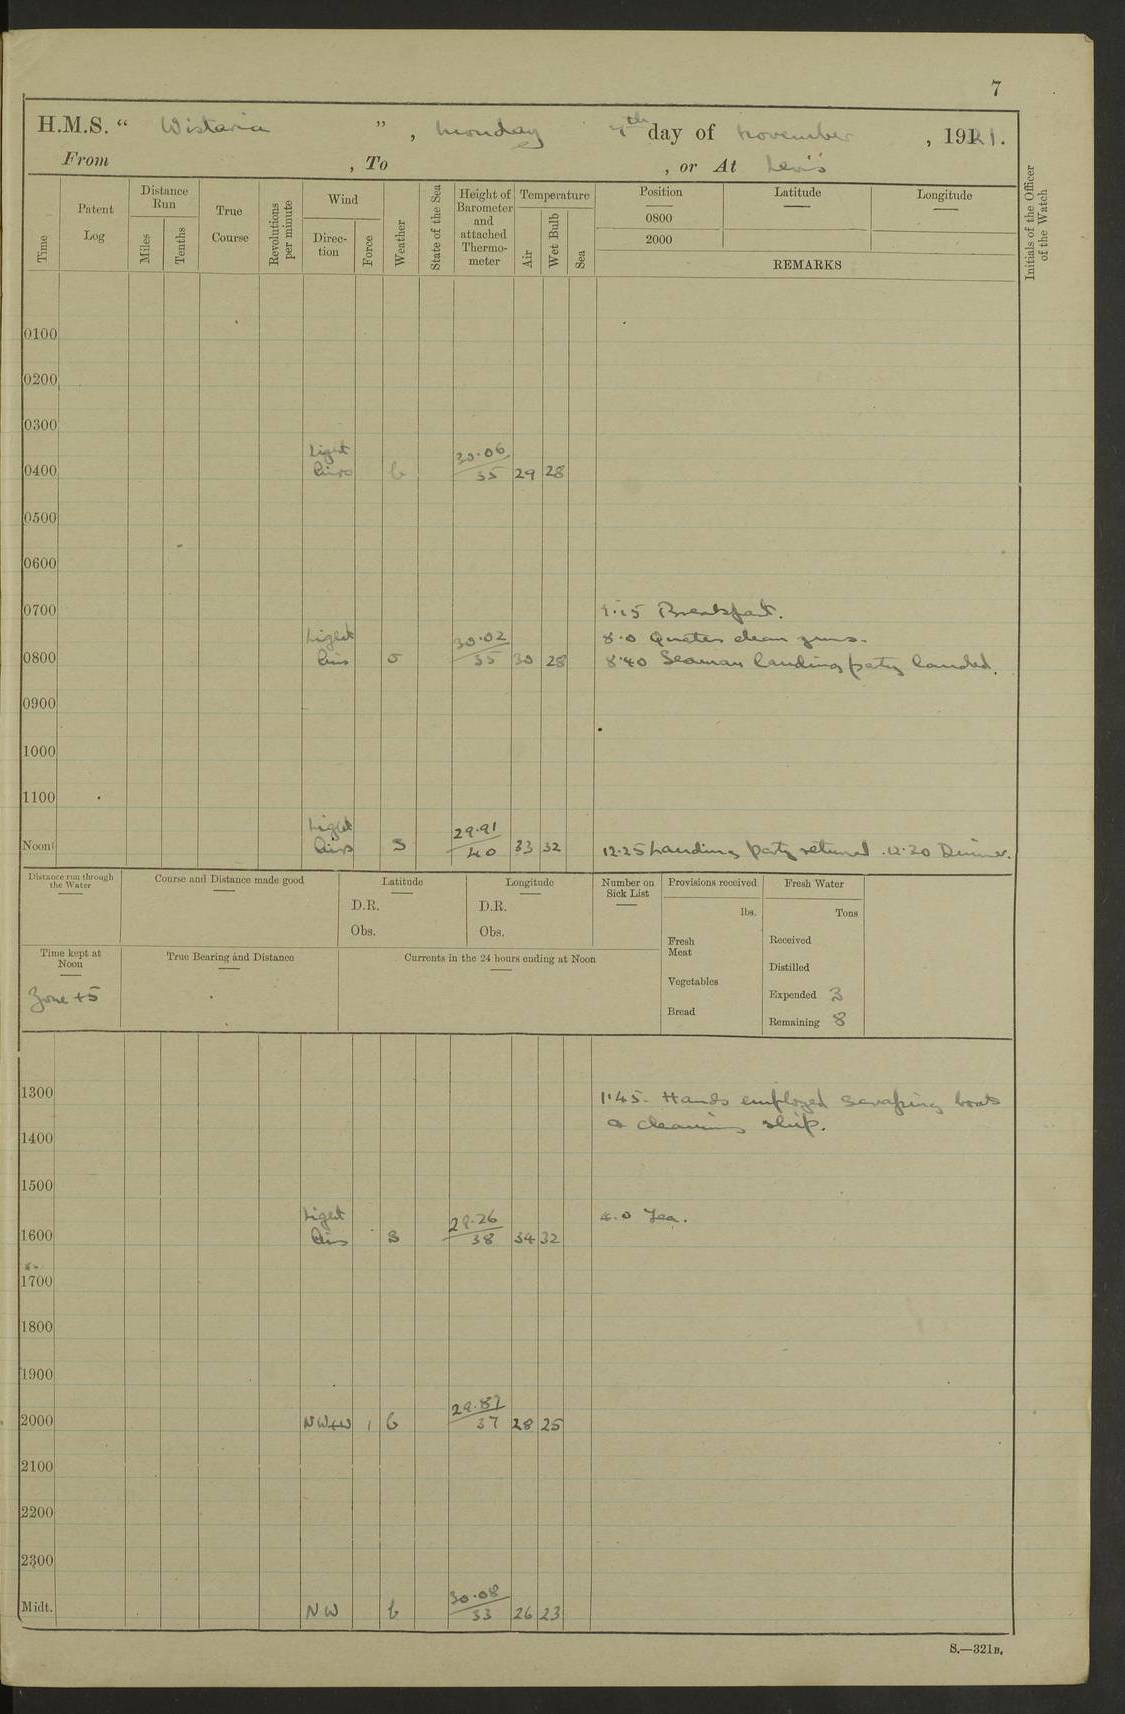 7
H.M.S. “ Wistaria ” , Monday 7th day of November , 1921.
From , To , or At Levis
Time
Patent Log
Distance Run
Miles
Tenths
True Course
Revolutions per minute
Wind
Direction
Force
Weather
State of the Sea
Height of Barometer and attached Thermometer
Temperature
Air
Wet Bulb
Sea
Position
Latitude
Longitude
0800
2000
REMARKS
Initials of the Officer of the Watch
0100
0200
0300
Light 30.06
0400 airs b 35 29 28
0500
0600
0700 7.15 Breakfast.
Light 30.02 8.0 Quarters clean guns.
0800 airs o 35 30 28 8.40 Seaman landing party landed.
0900
1000
1100
Light 29.91
Noon airs S 40 33 32 12.25 Landing party returned. 12.30 Dinner.
Distance run through the Water
Course and Distance made good
Latitude
D.R.
Obs.
Longitude
D.R.
Obs.
Number on Sick List
Provisions received
lbs.
Fresh Meat
Vegetables
Bread
Fresh Water
Tons
Received
Distilled
Expended 3
Remaining 8
Time kept at Noon
Zone +5
True Bearing and Distance
Currents in the 24 hours ending at Noon
1300 1.45. Hands employed scraping boats
& cleaning ship.
1400
1500
Light 29.26 4.0 Tea.
1600 airs S 38 34 32
1700
1800
1900
29.87
2000 NW×W 1 b 37 28 25
2100
2200
2300
30.08
Midt. NW b 33 26 23
S.—321B.